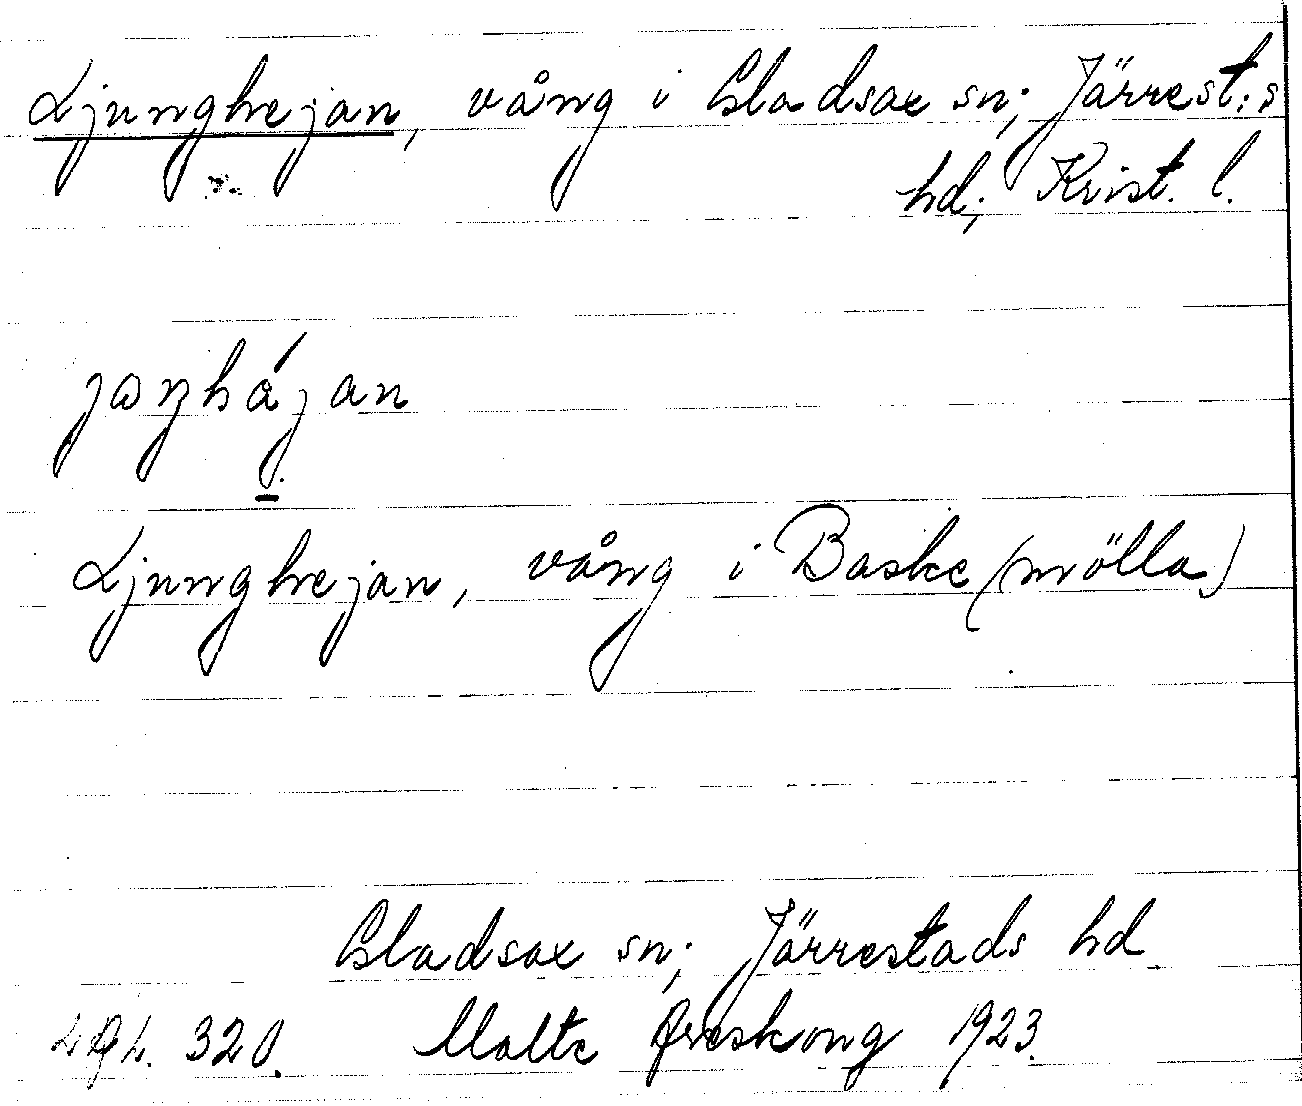 Ljunghejan, vång i Gladsax sn; Järrest:s
hd; Krist. l.
Ljunghejan, vång i Baske(mölla)
Gladsax sn; Järrestads hd
320. Malte Areskoug 1923.